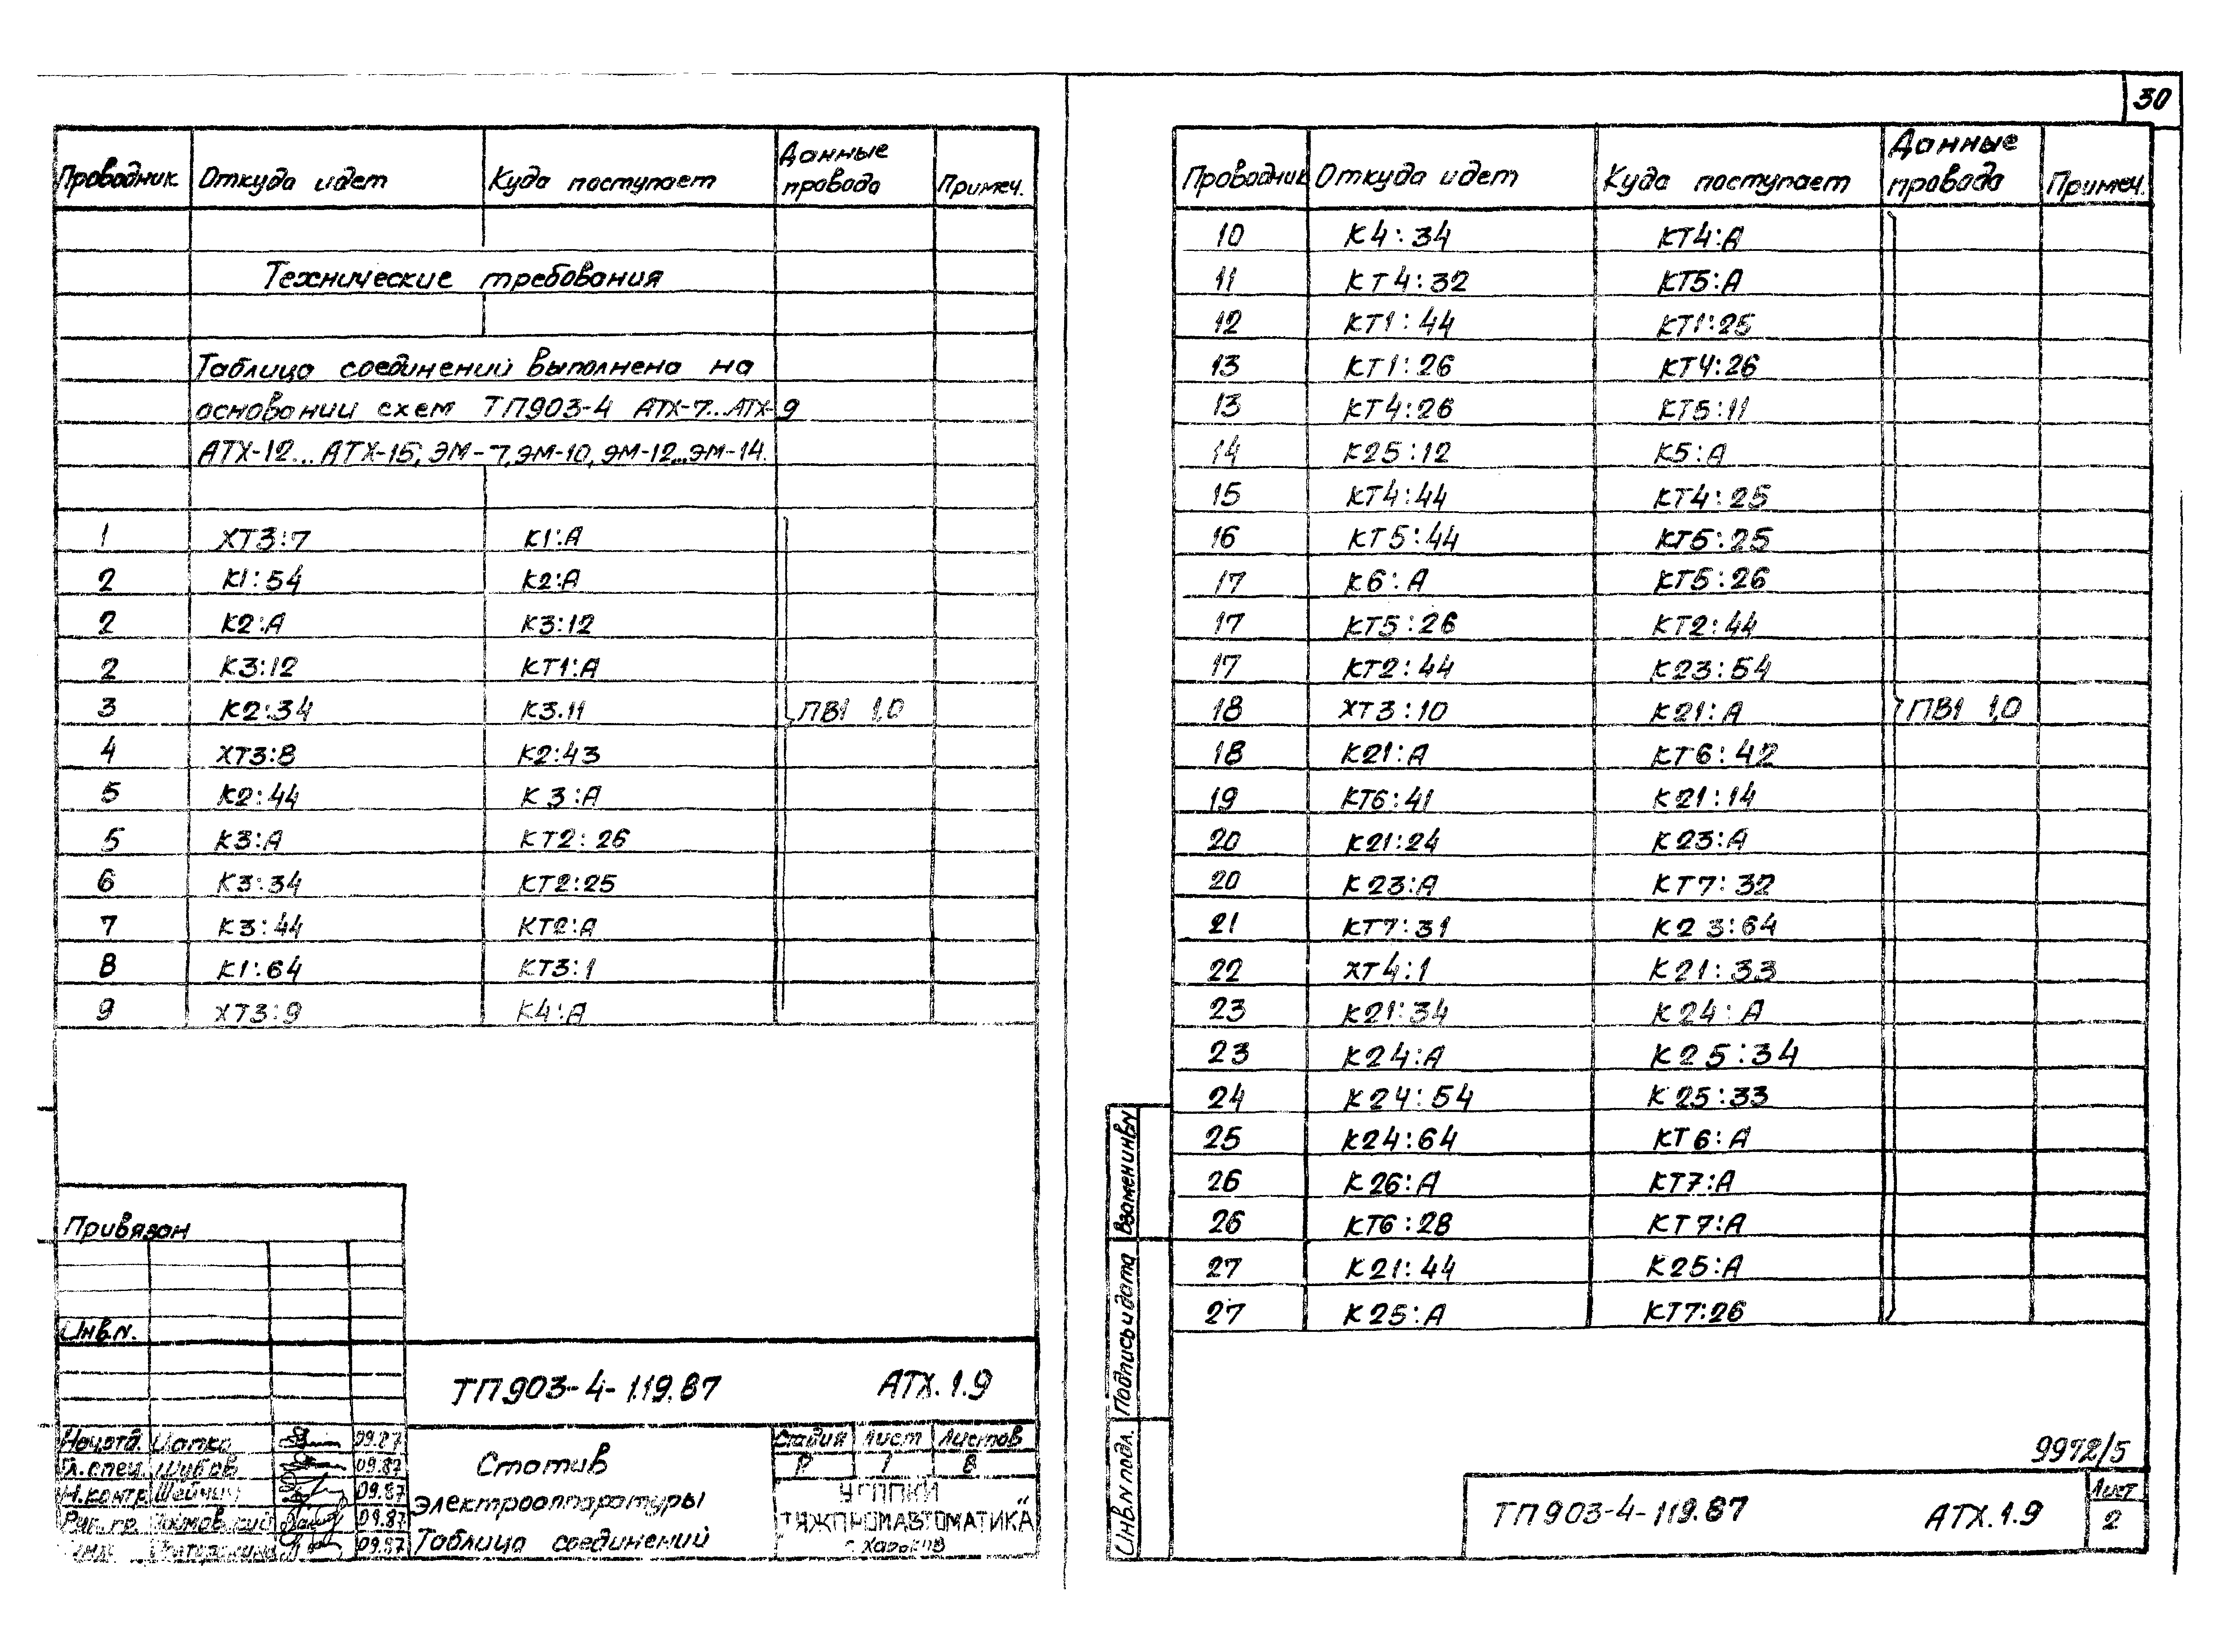 30
Проводник Откуда идет Куда поступает Данные провода Примеч.
Технические требования
Таблица соединений выполнена на
основании схем ТП903-4 АТХ-7...АТХ-9
АТХ-12...АТХ-15, ЭМ-7, ЭМ-10, ЭМ-12...ЭМ-14.
1 ХТ3:7 К1:А
2 К1:54 К2:А
2 К2:А К3:12
2 К3:12 КТ1:А
3 К2:34 К3.11 ПВ1 1,0
4 ХТ3:8 К2:43
5 К2:44 К3:А
5 К3:А КТ2:26
6 К3:34 КТ2:25
7 К3:44 КТ2:А
8 К1:64 КТ3:1
9 ХТ3:9 К4:А
Привязан
Инв.N.
ТП903-4-119.87 АТХ.1.9
Нач.отд. Цапко 09.87
Гл.спец. Шубов 09.87
Н.контр. 09.87
Рук.гр. 09.87
09.87
Статив
электроаппаратуры
Таблица соединений
Стадия Лист Листов
Р 1 8
ТЯЖПРОМАВТОМАТИКА"
г. Харьков
Проводник Откуда идет Куда поступает Данные провода Примеч.
10 К4:34 КТ4:А
11 КТ4:32 КТ5:А
12 КТ1:44 КТ1:25
13 КТ1:26 КТ4:26
13 КТ4:26 КТ5:11
14 К25:12 К5:А
15 КТ4:44 КТ4:25
16 КТ5:44 КТ5:25
17 К6:А КТ5:26
17 КТ5:26 КТ2:44
17 КТ2:44 К23:54
18 ХТ3:10 К21:А ПВ1 1,0
18 К21:А КТ6:42
19 КТ6:41 К21:14
20 К21:24 К23:А
20 К23:А КТ7:32
21 КТ7:31 К23:64
22 ХТ4:1 К21:33
23 К21:34 К24:А
23 К24:А К25:34
24 К24:54 К25:33
25 К24:64 КТ6:А
26 К26:А КТ7:А
26 КТ6:28 КТ7:А
27 К21:44 К25:А
27 К25:А КТ7:26
Взамен инв.N
Подпись и дата
Инв.N подл.
9972/5
ТП903-4-119.87 АТХ.1.9
Лист
2